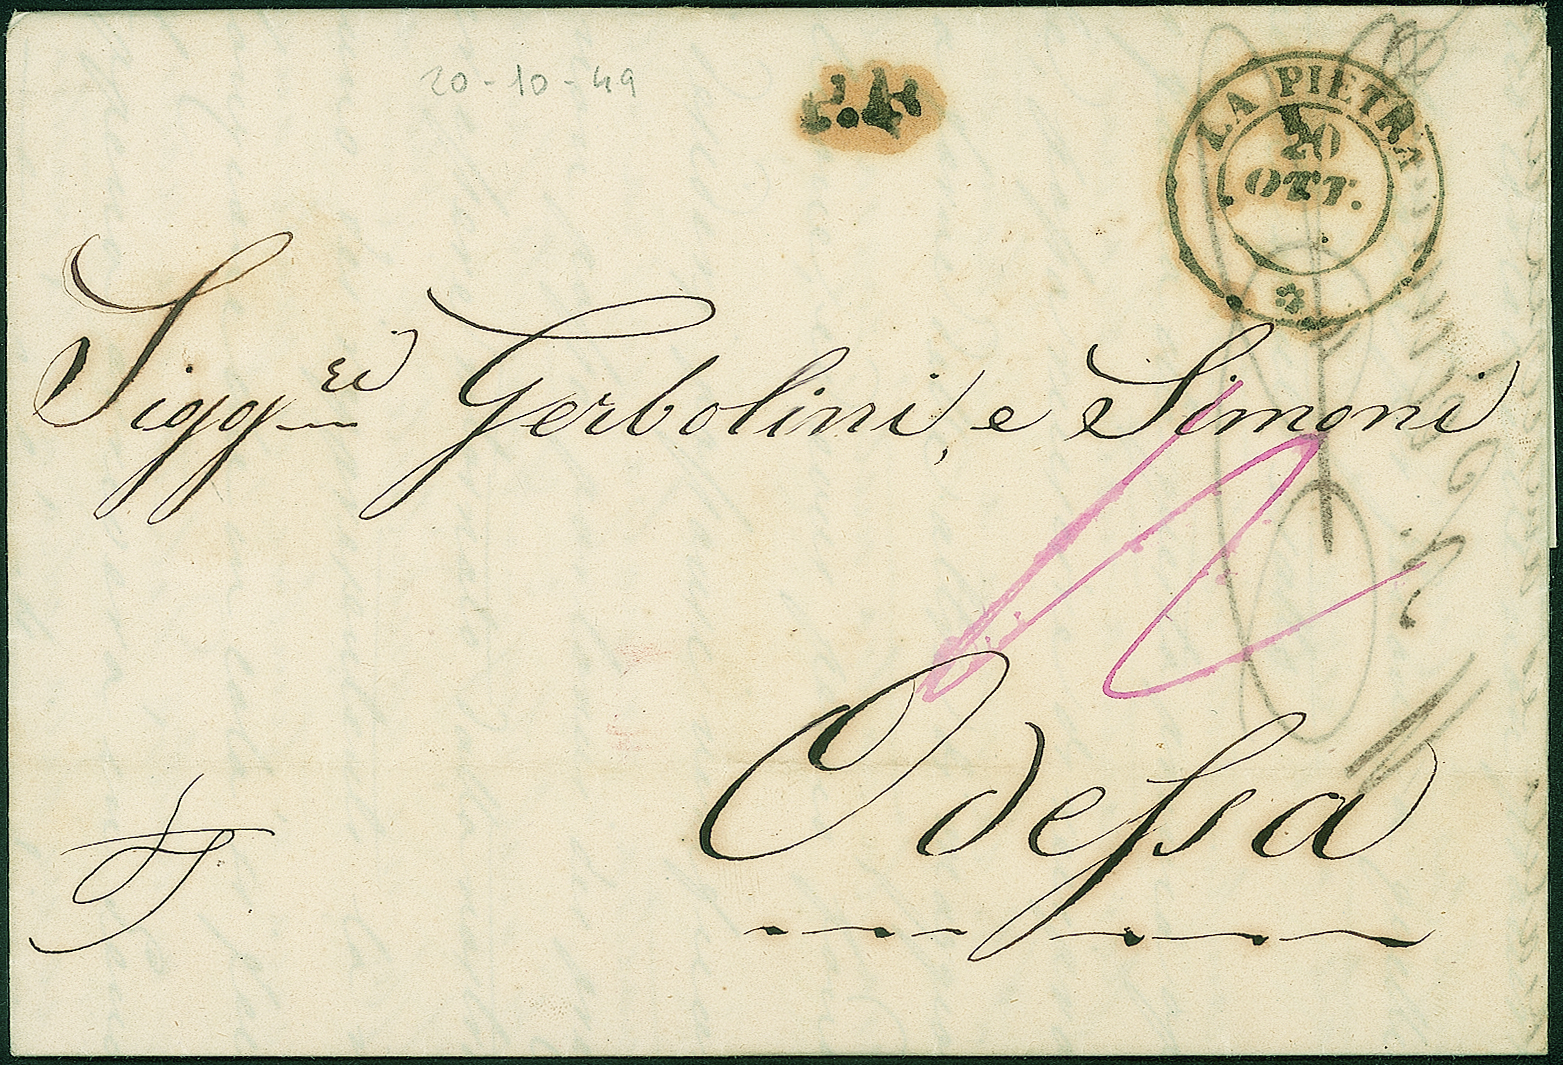 20-10-49
LA PIETRA
20
OTT.
Sigg.ri Gerbolini, e Simoni
Odessa